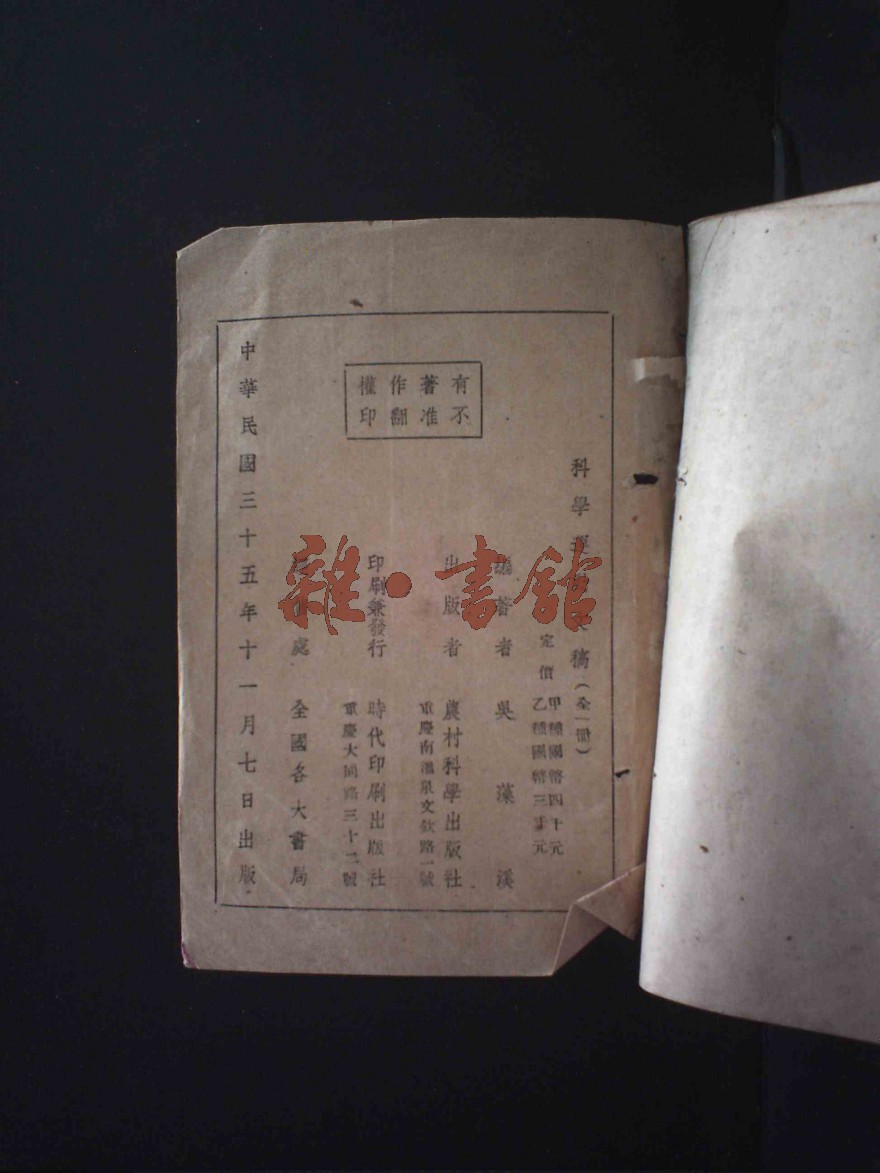 有著作權
不准翻印
科學
稿(全一冊)
定價
甲種國幣四十元
乙種國幣三十元
編著者 吳藻溪
出版者 農村科學出版社
重慶南溫泉文欽路一號
印刷兼發行 時代印刷出版社
重慶大同路三十二號
處 全國各大書局
中華民國三十五年十一月七日出版
雜·書館